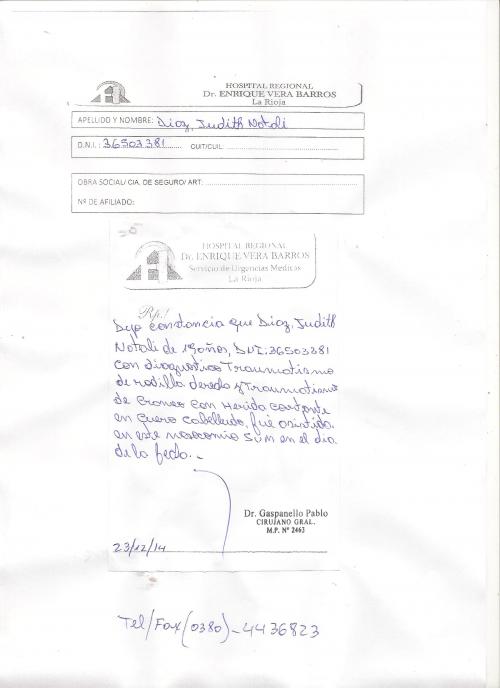 HOSPITAL REGIONAL
Dr. ENRIQUE VERA BARROS
La Rioja
APELLIDO Y NOMBRE: Diaz, Judith Natali
D.N.I.: 36503381 CUIT/CUIL:
OBRA SOCIAL/ CIA. DE SEGURO/ ART:
Nº DE AFILIADO:
HOSPITAL REGIONAL
Dr. ENRIQUE VERA BARROS
Servicio de Urgencias Medicas
La Rioja
Rp.!
Dejo constancia que Diaz, Judith
Natali de 19 años, DNI: 36503381
con diagnostico Traumatismo
de rodilla derecha y Traumatismo
de Craneo con Herida cortante
en cuero cabelludo, fue asistida
en este nosocomio en el dia
de la fecha.
Dr. Gaspanello Pablo
CIRUJANO GRAL.
M.P. Nº 2463
23/12/14
Tel/Fax (0380)-4436823